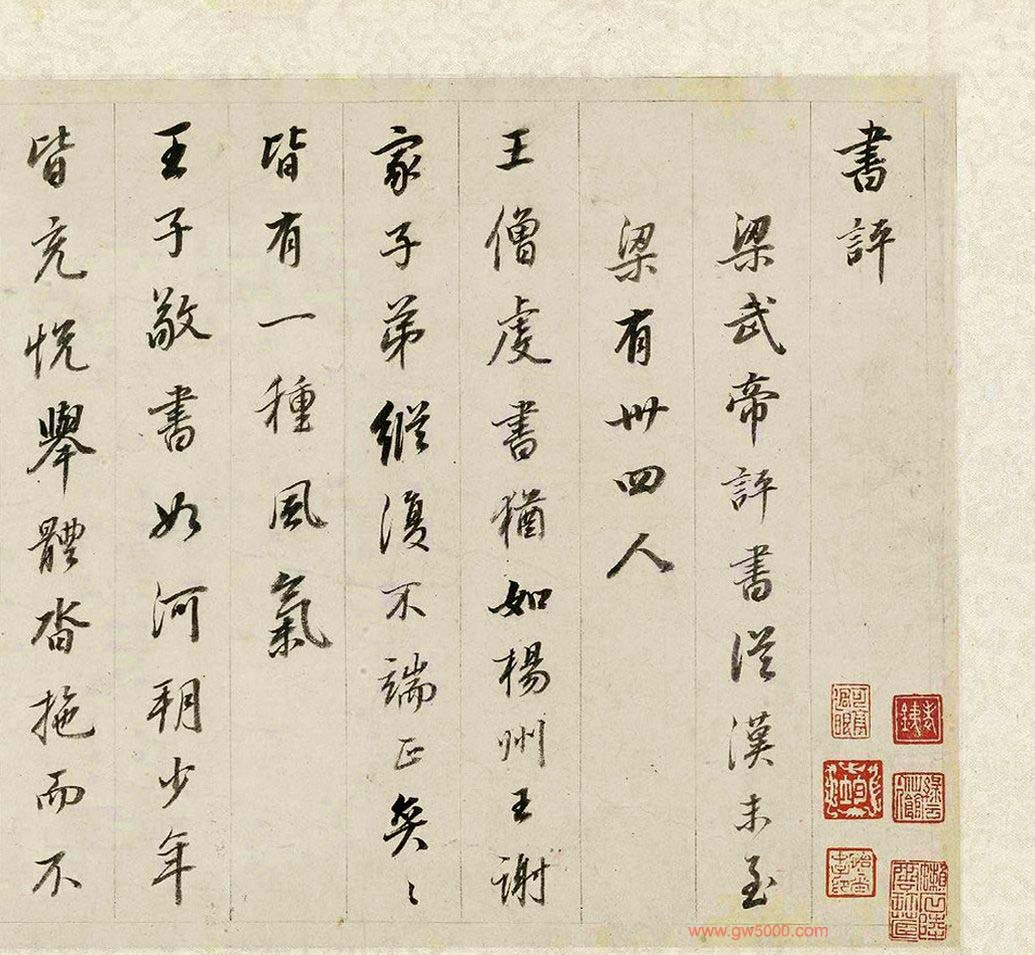 書評
梁武帝評書從漢末至
梁有卅四人
王僧虔書猶如楊州王謝
家子弟縱復不端正奕〻
皆有一種風氣
王子敬書如河朔少年
皆充悅舉體沓拖而不
www.gw5000.com